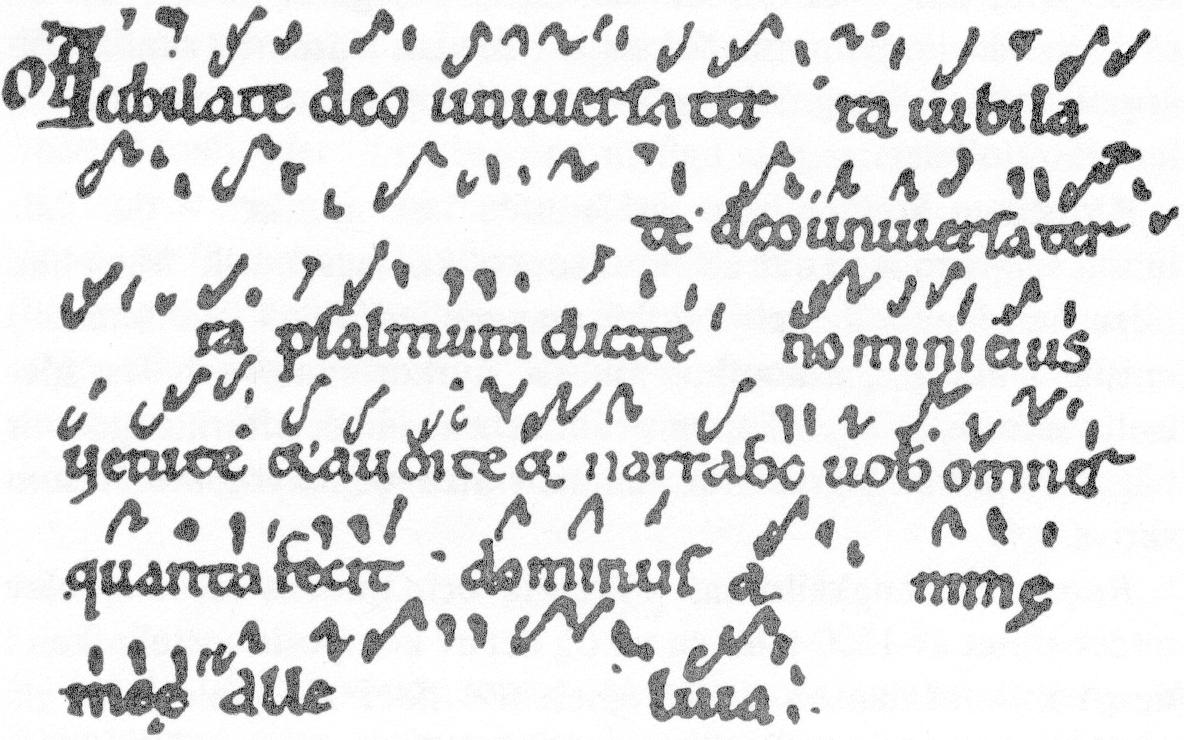 Iubilate deo uniuersa ter ra iubila
te deo uniuersa ter
ra psalmum dicite nomini eius
uenite & audite & narrabo uob omnes
quanta fecit dominus a nime
mee alle
luia